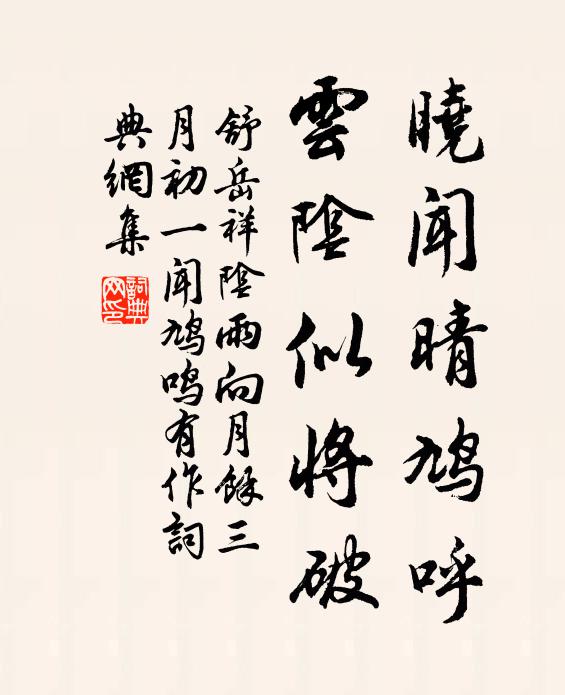 曉聞晴鳩呼
雲陰似將破
舒岳祥陰雨向月餘三
月初一聞鳩鳴有作詞
典網集
詞典網印